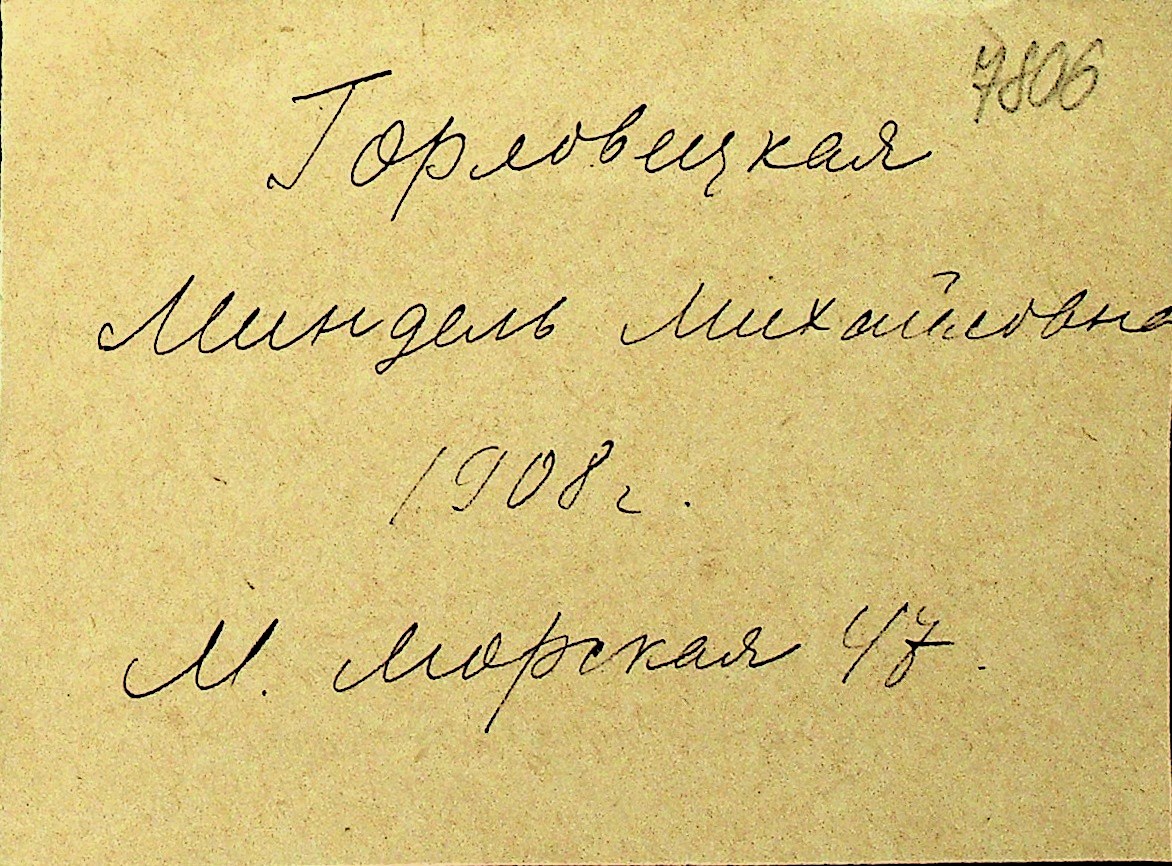 7806
Горловецкая
Миндель Михайловна
1908 г.
М. Морская 47.